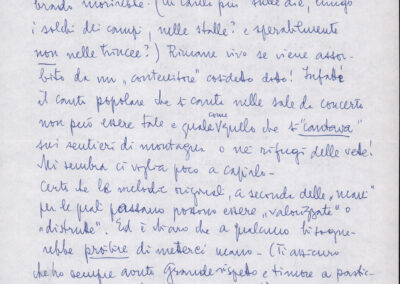 brando morirebbe. (Si canti più sulle aie, lungo
i solchi dei campi, nelle stalle? e sperabilmente
non nelle trincee?) Rimane vivo se viene assor-
bito da un "contenitore" cosidetto dotto! Infatti
il canto popolare che si canta nelle sale da concerto
non può essere tale e quale come quello che si "cantava"
sui sentieri di montagna o nei rifugi delle vette!
Mi sembra ci voglia poco a capirlo-
Certo che le melodie originali, a seconda delle "mani"
per le quali passano possono essere "valorizzate" o
"distrutte". Ed è chiaro che a qualcuno bisogne-
rebbe proibire di metterci mano- (Ti assicuro
che ho sempre avuto grande rispetto e timore a pastic-